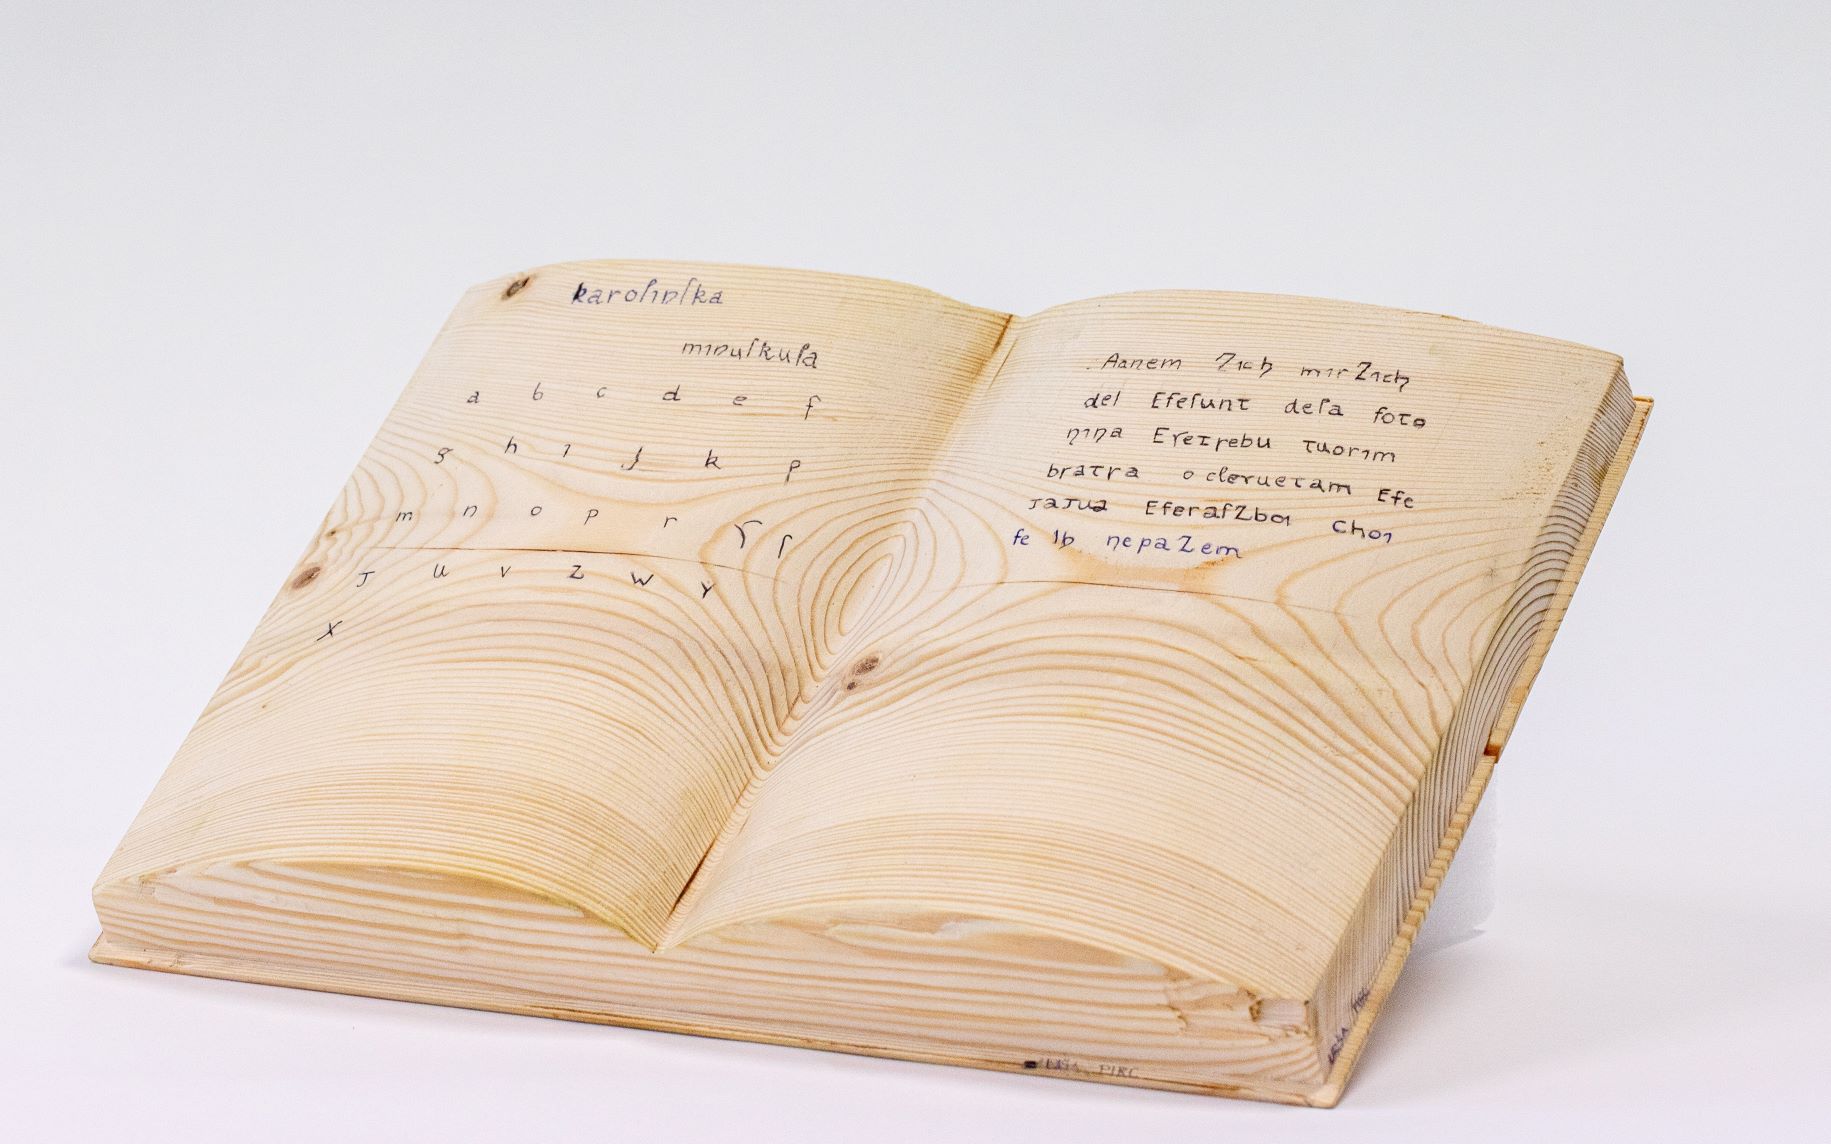 karolinſka
minuſkula
a b c d e f
g h i j k p
m n o p r ɼ ſ
J u v z w y
x
Aanem Zich mirZich
del Efeſunt deſa foto
nina Eɼeτɼebu τuorim
braτra o cleruetam Efe
JaJua EferaſZboi Choi
fe Ih nepaZem
PIRC